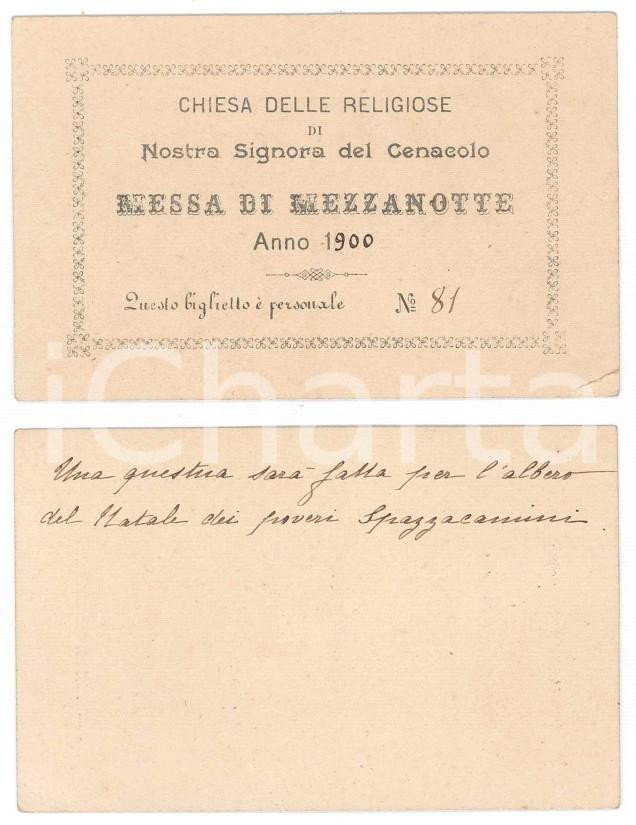 CHIESA DELLE RELIGIOSE
DI
Nostra Signora del Cenacolo
MESSA DI MEZZANOTTE
Anno 1900
Questo biglietto è personale No 81
iCharta
Una questua sarà fatta per l'albero
del Natale dei poveri Spazzacamini
iCharta